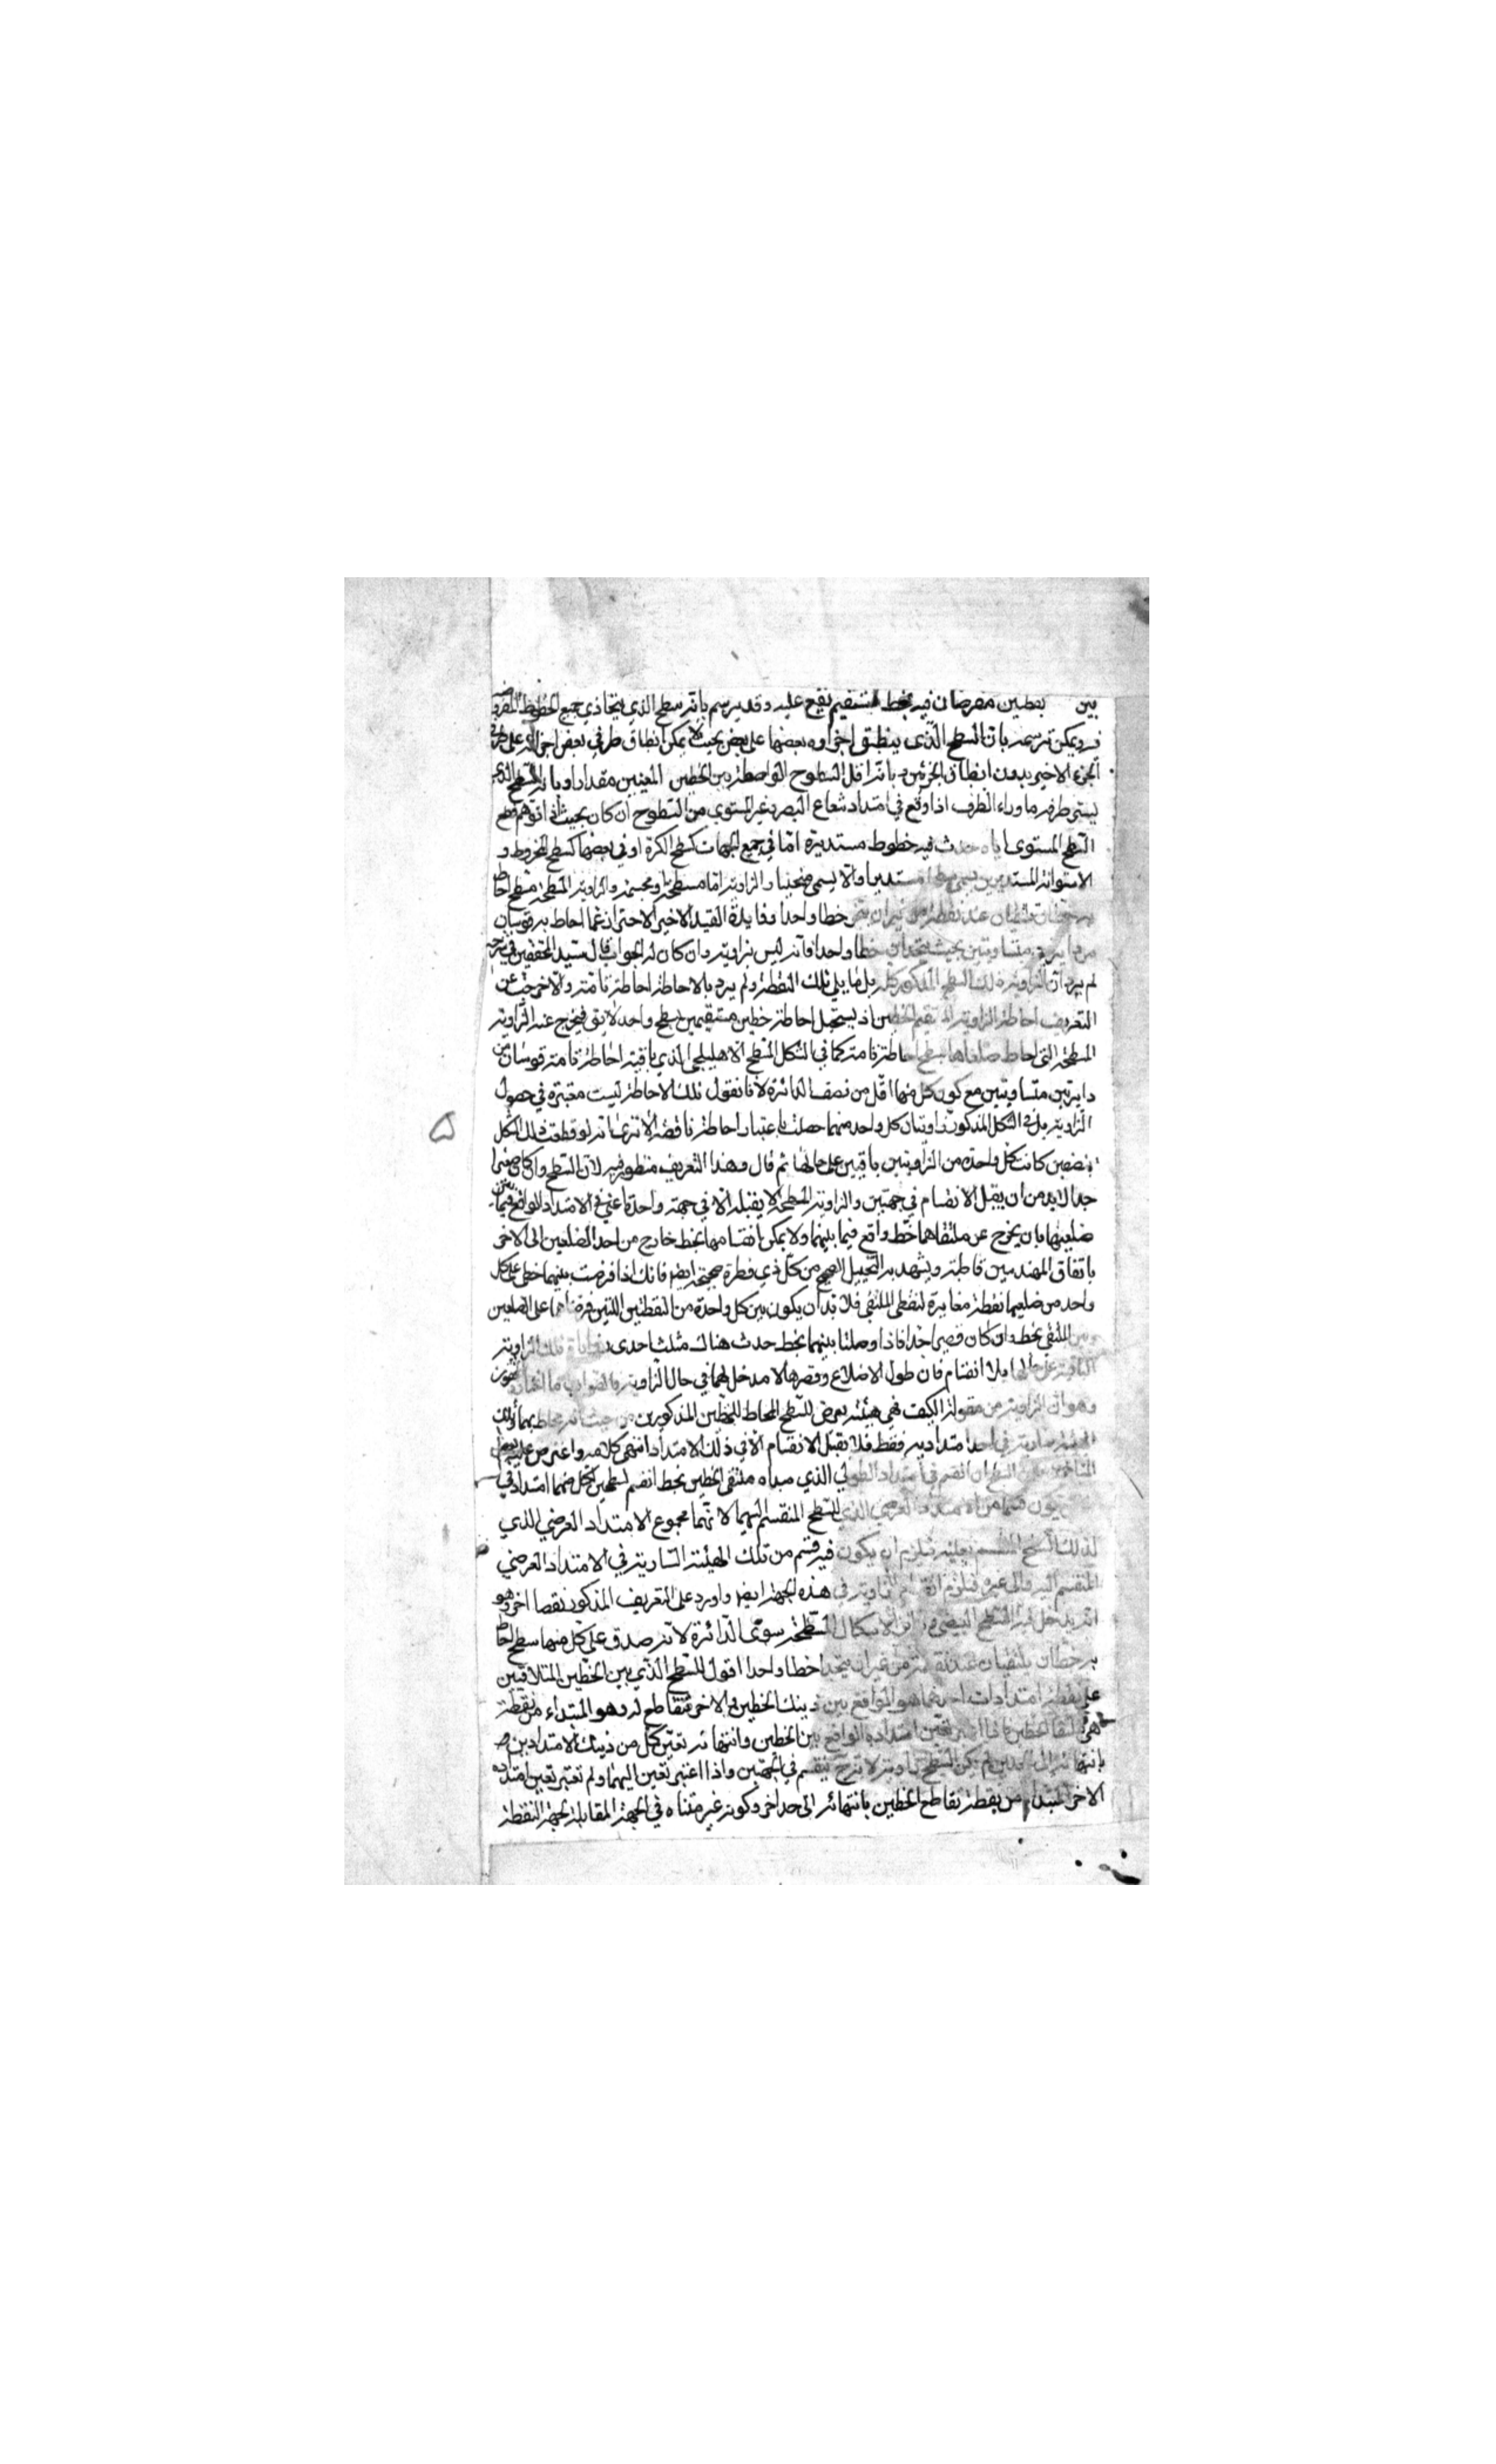 بين نقطتين مفرضان فيه بخط مستقيم يقع عليه وقد يرسم بانه سطح الذي يتحاذي جميع الخطوط المفروضه
فيه ويمكن ترسمه بان السطح الذي ينطبق اجزاوه بعضها على بعض بحيث لا يمكن انطباق طرفي بعض اجزائه على طرفي
الجزء الاخير بدون انطباق الجزئين وبانه اقل السطوح الواصلة بين الخطين المعينين مقدارا وبانه السطح الذي
يستر طرفه ما وراء الطرف اذا وقع في امتداد شعاع البصر وغير المستوي من السطوح ان كان بحيث اذا توهم قطع
السطح المستوى اياه حدث فيه خطوط مستديرة اما في جميع الجهات كسطح الكرة او في بعضها كسطح المخروط و
الاسطوانة المستديرين يسمى سطحا مستديرا والا يسمى منحنيا والزاوية اما مسطحة او مجسمة والزاوية المسطحة سطح احاط
به خطان يلتقيان عند نقطة من غير ان يتحدا خطا واحدا وفايدة القيد الاخير الاحتراز عما احاط به قوسان
من دايرتين متساويتين بحيث يتحدان خطا واحدا فانه ليس بزاوية وان كان له الجواب قال سيد المحققين في شرحه
لم يرد ان الزاوية ذلك السطح المذكور كله بل ما يلي تلك النقطة ولم يرد بالاحاطة احاطة تامة والا خرجت عن
التعريف احاطة الزاوية المستقيم الخطين اذ يستحيل احاطة خطين مستقيمين بسطح واحد لا يق فيخرج عنه الزاوية
المسطحة التي احاط ضلعاها بسطح احاطة تامة كما في الشكل المسطح الاهليلجي الذي باقيه احاطة تامة قوسان من
دايرتين متساويتين مع كون كل منهما اقل من نصف الدائرة لانا نقول تلك الاحاطة ليست معتبرة في حصول
الزاوية بل في الشكل المذكور زاويتان كل واحد منهما حصلت باعتبار احاطة ناقصة الا ترى انه لو قطعت ذلك الشكل
بنصفين كانت كل واحدة من الزاويتين باقيتين على حالها ثم قال وهذا التعريف منظور فيه لان السطح وان كان صغيرا
جدا لا بد من ان يقبل الانقسام في جهتين والزاوية المسطحة لا يقبله الا في جهة واحدة اعني في الامتداد الواقع فيما بين
ضلعيها بان يخرج عن ملتقاهما خط واقع فيما بينهما ولا يمكن انقسامها بخط خارج من احد الضلعين الى الاخر
باتفاق المهندسين قاطبة ويشهد به التخييل الصحيح من كل ذي فطرة صحيحة ايضا فانك اذا فرضت بينهما خطى على كل
واحد من ضلعيها نقطة مغايرة لنقطى الملتقى فلا بد ان يكون بين كل واحدة من النقطتين اللتين فرضناهما على الضلعين
وبين الملتقى بخط وان كان قصيرا جدا فاذا وصلنا بينهما بخط حدث هناك مثلث احدى زواياه تلك الزاوية
الباقية على حالها بلا انقسام فان طول الاضلاع وقصرها لا مدخل لهما في حال الزاوية والصواب ما اختاره
وهو ان الزاوية من مقولة الكيف فهي هيئة يعرض للسطح المحاط للخطين المذكورين من حيث انه محاط بهما وتلك
الهيئة سارية في احد امتداديه فقط فلا تقبل الانقسام الا في ذلك الامتداد انتهى كلامه واعترض عليه بعض
المتأخرين بان السطح ان انقسم في امتداد الطولي الذي مبداه ملتقى الخطين بخط انقسم لسطحين لكل منهما امتداد في
يكون قسما من الامتداد العرضي الذي للسطح المنقسم اليهما لانهما مجموع الامتداد العرضي الذي
لذلك السطح المنقسم بعينه فيلزم ان يكون فيه قسم من تلك الهيئة السارية في الامتداد العرضي
المنقسم اليه والى غيره فيلزم انقسام الزاوية في هذه الجهة ايضا واورد على التعريف المذكور نقصا اخر وهو
انه يدخل فيه السطح البيضي وسائر الاشكال المسطحة سوى الدائرة لانه صدق على كل منها سطح احاط
به خطان يلتقيان عند نقطة من غير ان يتحدا خطا واحدا اقول للسطح الذي بين الخطين المتلاقيين
على نقطة امتدادات احدهما هو الواقع بين ذينك الخطين والاخر متقاطع له وهو المبتداء من نقطة
هي ملتقا الخطين فاذا اعتبر تعين امتداده الواقع بين الخطين وانتهائه تعين كل من ذينك الامتدادين
بانتهائه الى حدين لم يكن السطح زاوية لانه ح ينقسم في الجهتين واذا اعتبر تعين اليهما ولم تعتبر تعين امتداده
الاخر المبتداء من نقطة تقاطع الخطين بانتهائه الى حد اخر وكونه غير متناه في الجهة المقابلة لجهة النقطة